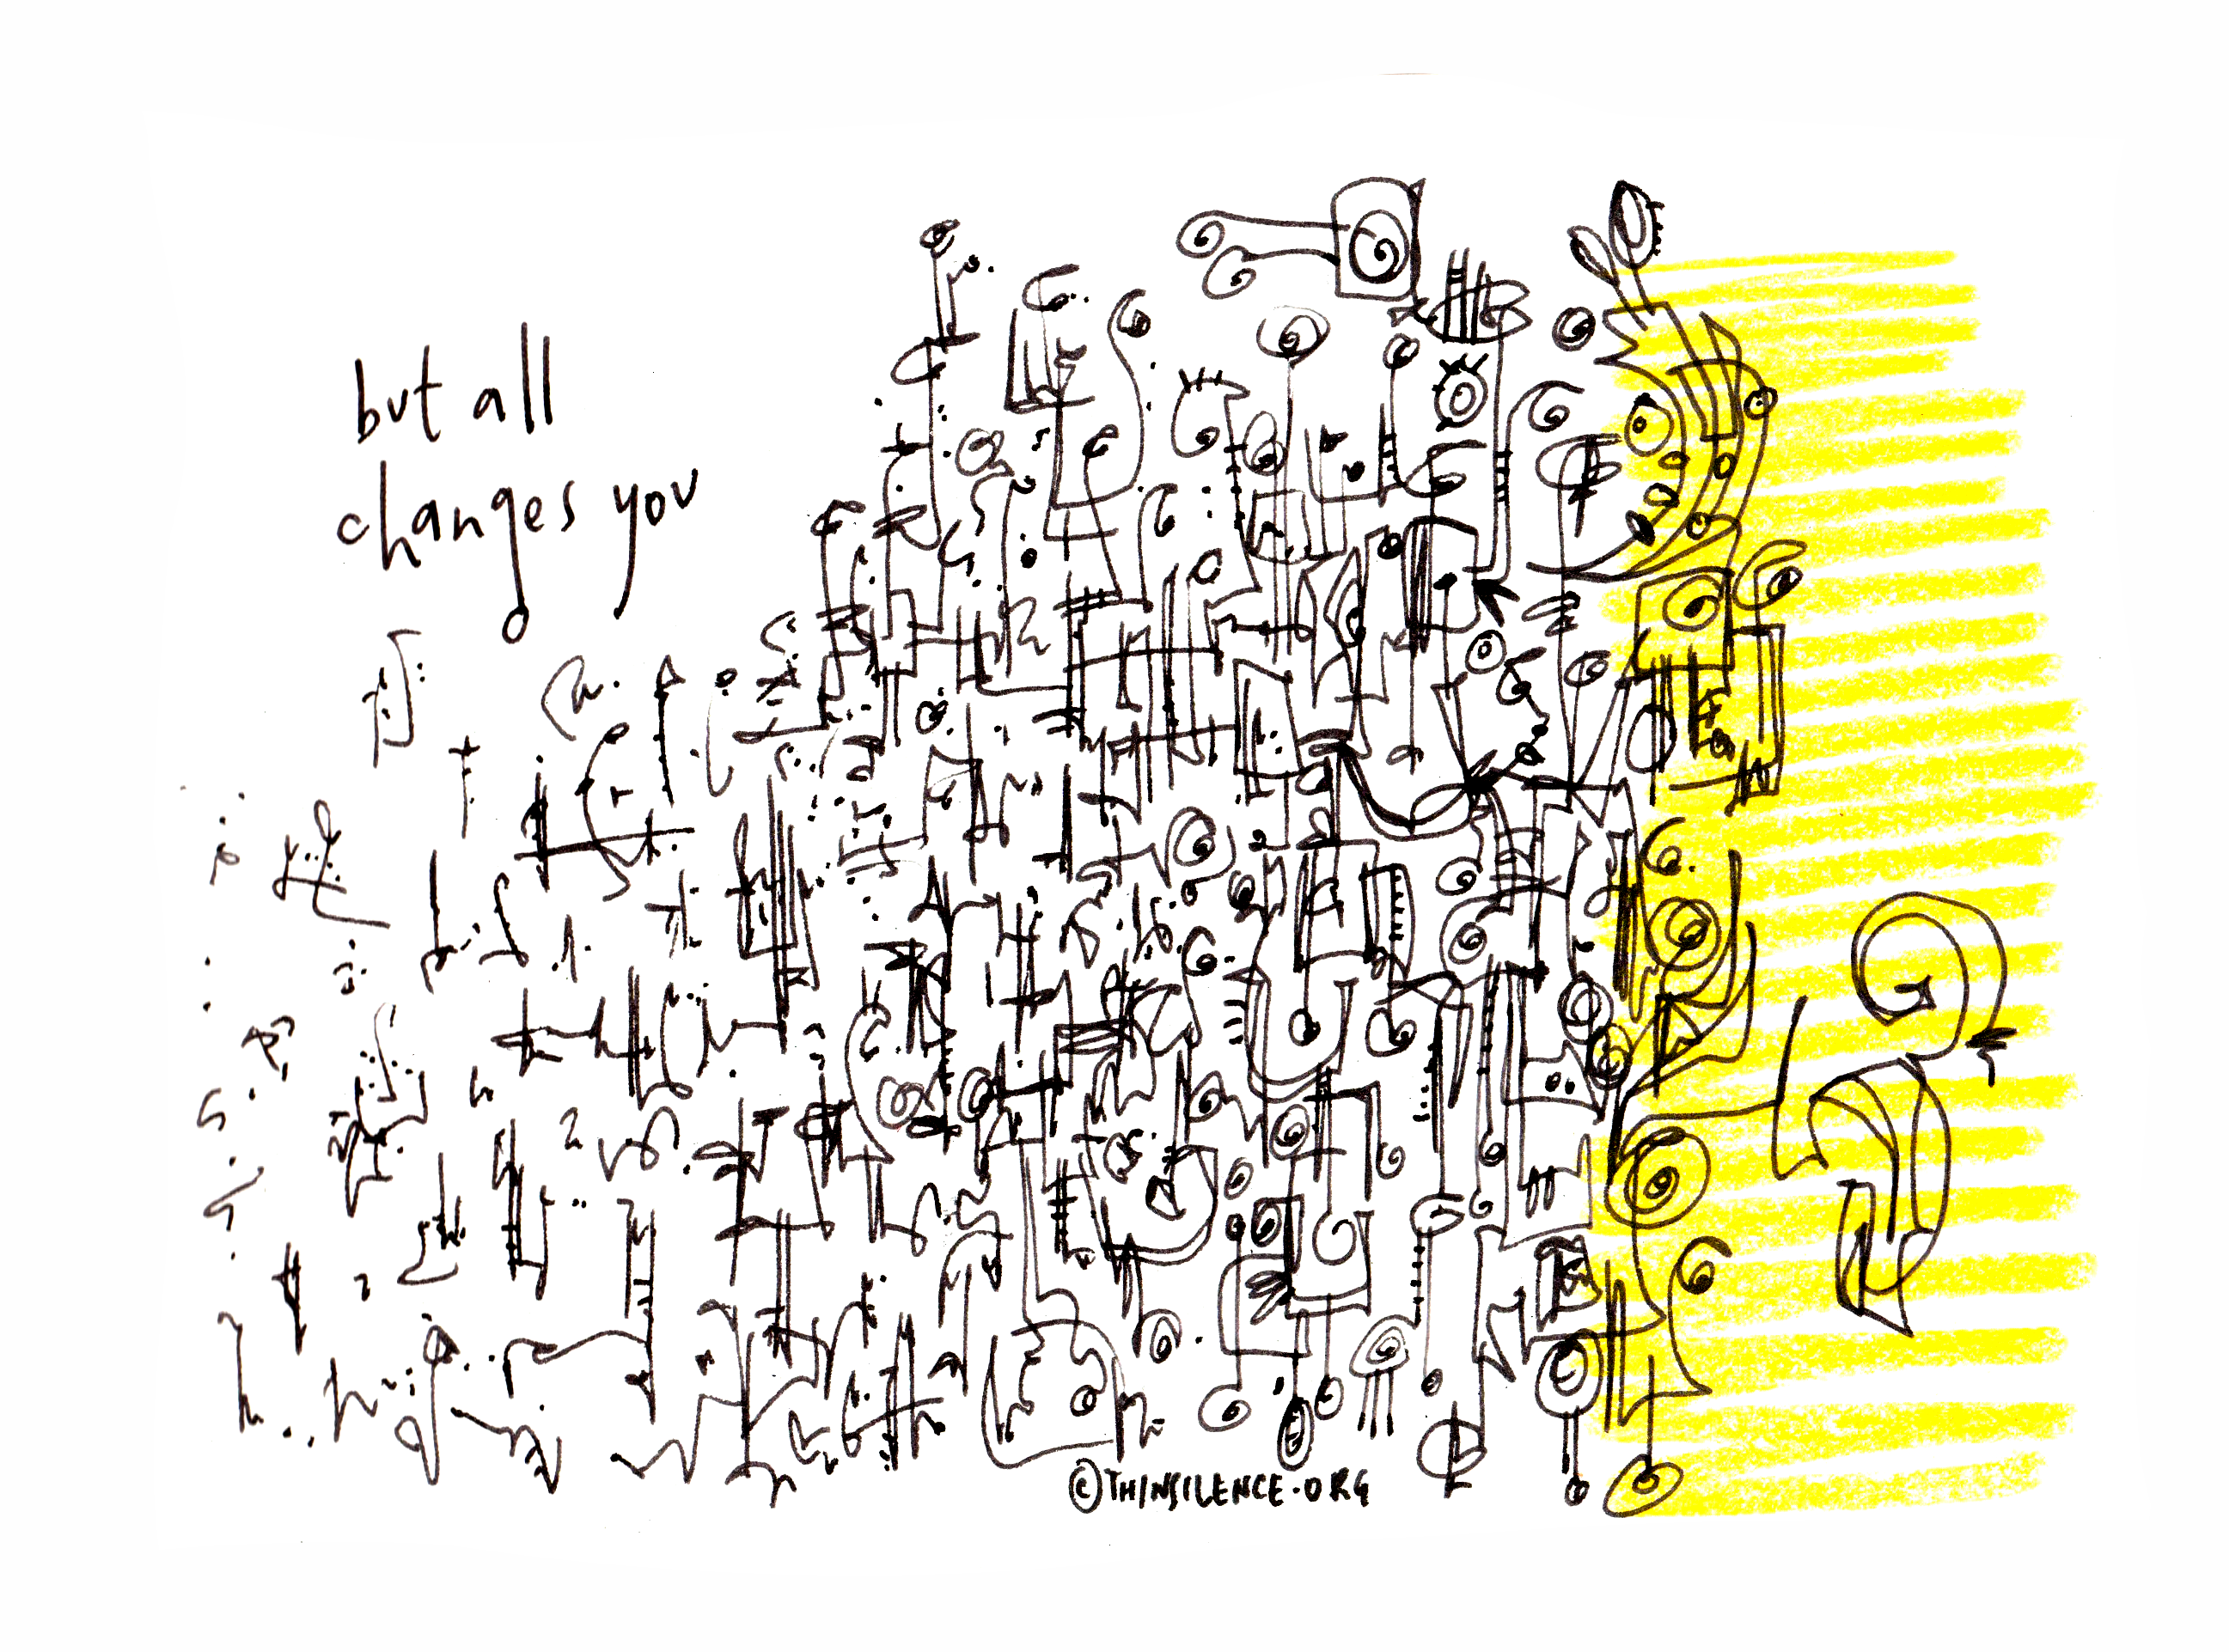 but all
changes you
©THINSILENCE.ORG